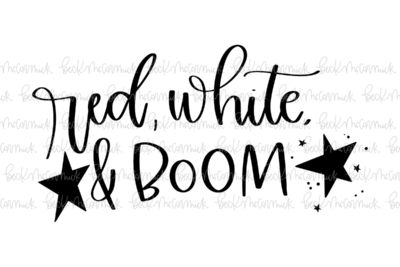 red, white,
& BOOM